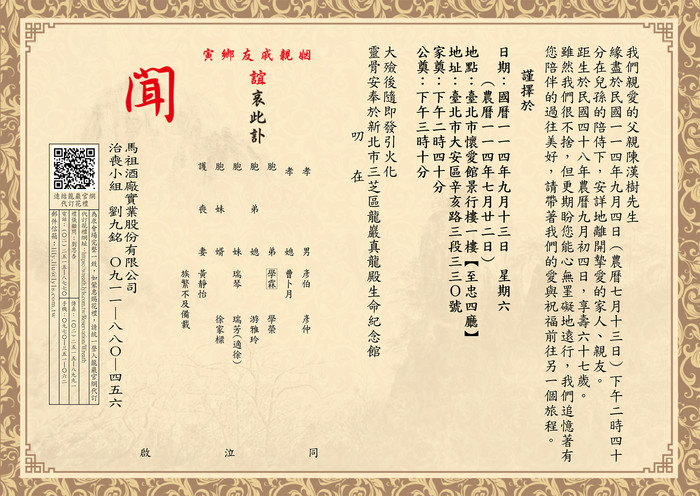 我們親愛的父親陳漢樹先生
緣盡於民國一一四年九月四日（農曆七月十三日）下午二時四十
分在兒孫的陪侍下，安詳地離開摯愛的家人、親友。
距生於民國四十八年農曆九月初四日，享壽六十七歲。
雖然我們很不捨，但更期盼您能心無罣礙地遠行，我們追憶著有
您陪伴的過往美好，請帶著我們的愛與祝福前往另一個旅程。
謹擇於
日期：國曆一一四年九月十三日　星期六
（農曆一一四年七月廿二日）
地點：臺北市懷愛館景行樓一樓【至忠四廳】
地址：臺北市大安區辛亥路三段三三０號
家奠：下午二時四十分
公奠：下午三時十分
大殮後隨即發引火化
靈骨安奉於新北市三芝區龍巖真龍殿生命紀念館
叨　在
姻親戚友鄉寅
誼
哀此訃
聞
孝　男　彥伯　彥仲
孝　媳　曹卜月
胞　弟　學霖　學榮
胞　弟　媳　游雅玲
胞　妹　瑞琴　瑞芳(適徐)
胞　妹　婿　徐家樑
護　喪　妻　黃靜怡
族繁不及備載
同　泣　啟
馬祖酒廠實業股份有限公司
治喪小組　劉九銘　０九一一－八八０－四五六
連結龍巖官網
代訂花禮